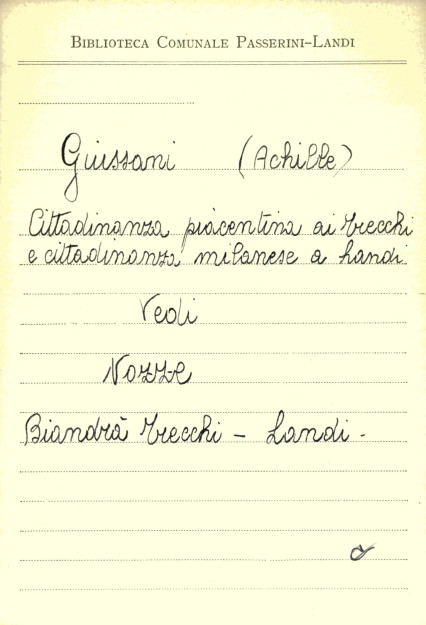 BIBLIOTECA COMUNALE PASSERINI-LANDI
Giussani (Achille)
Cittadinanza piacentina ai Trecchi
e cittadinanza milanese a Landi
Vedi
Nozze
Biandrà Trecchi - Landi -